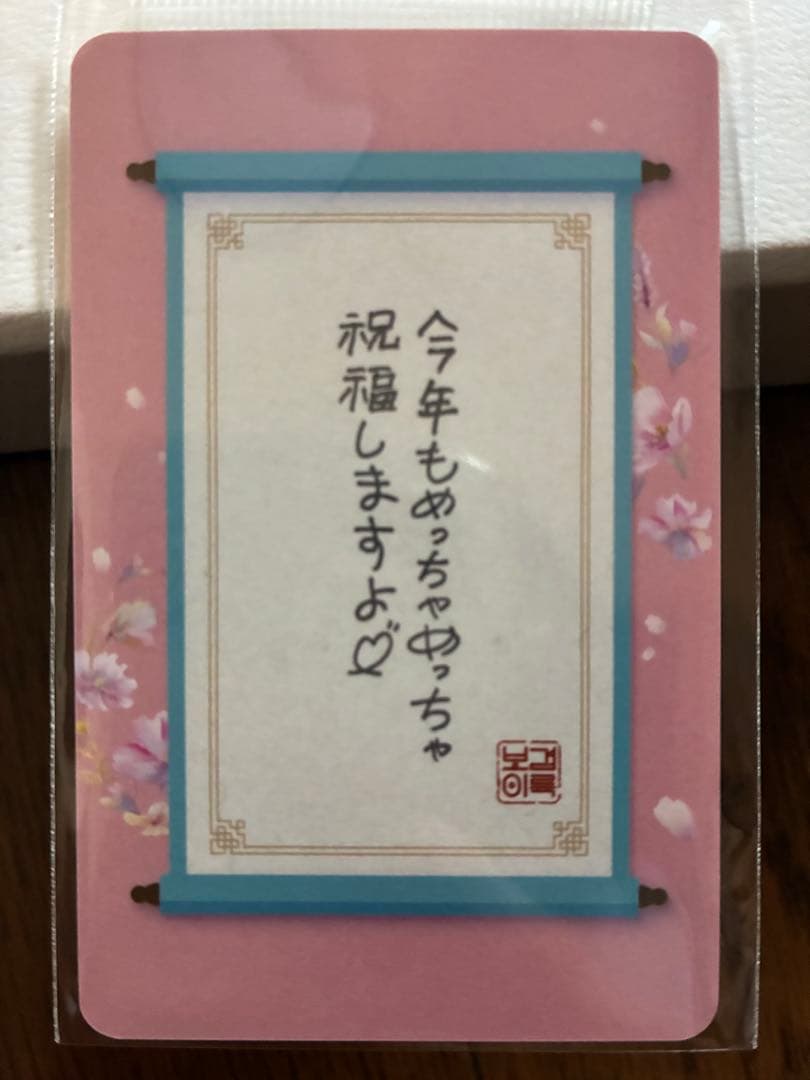 今年もめっちゃめっちゃ
祝福しますよ♡